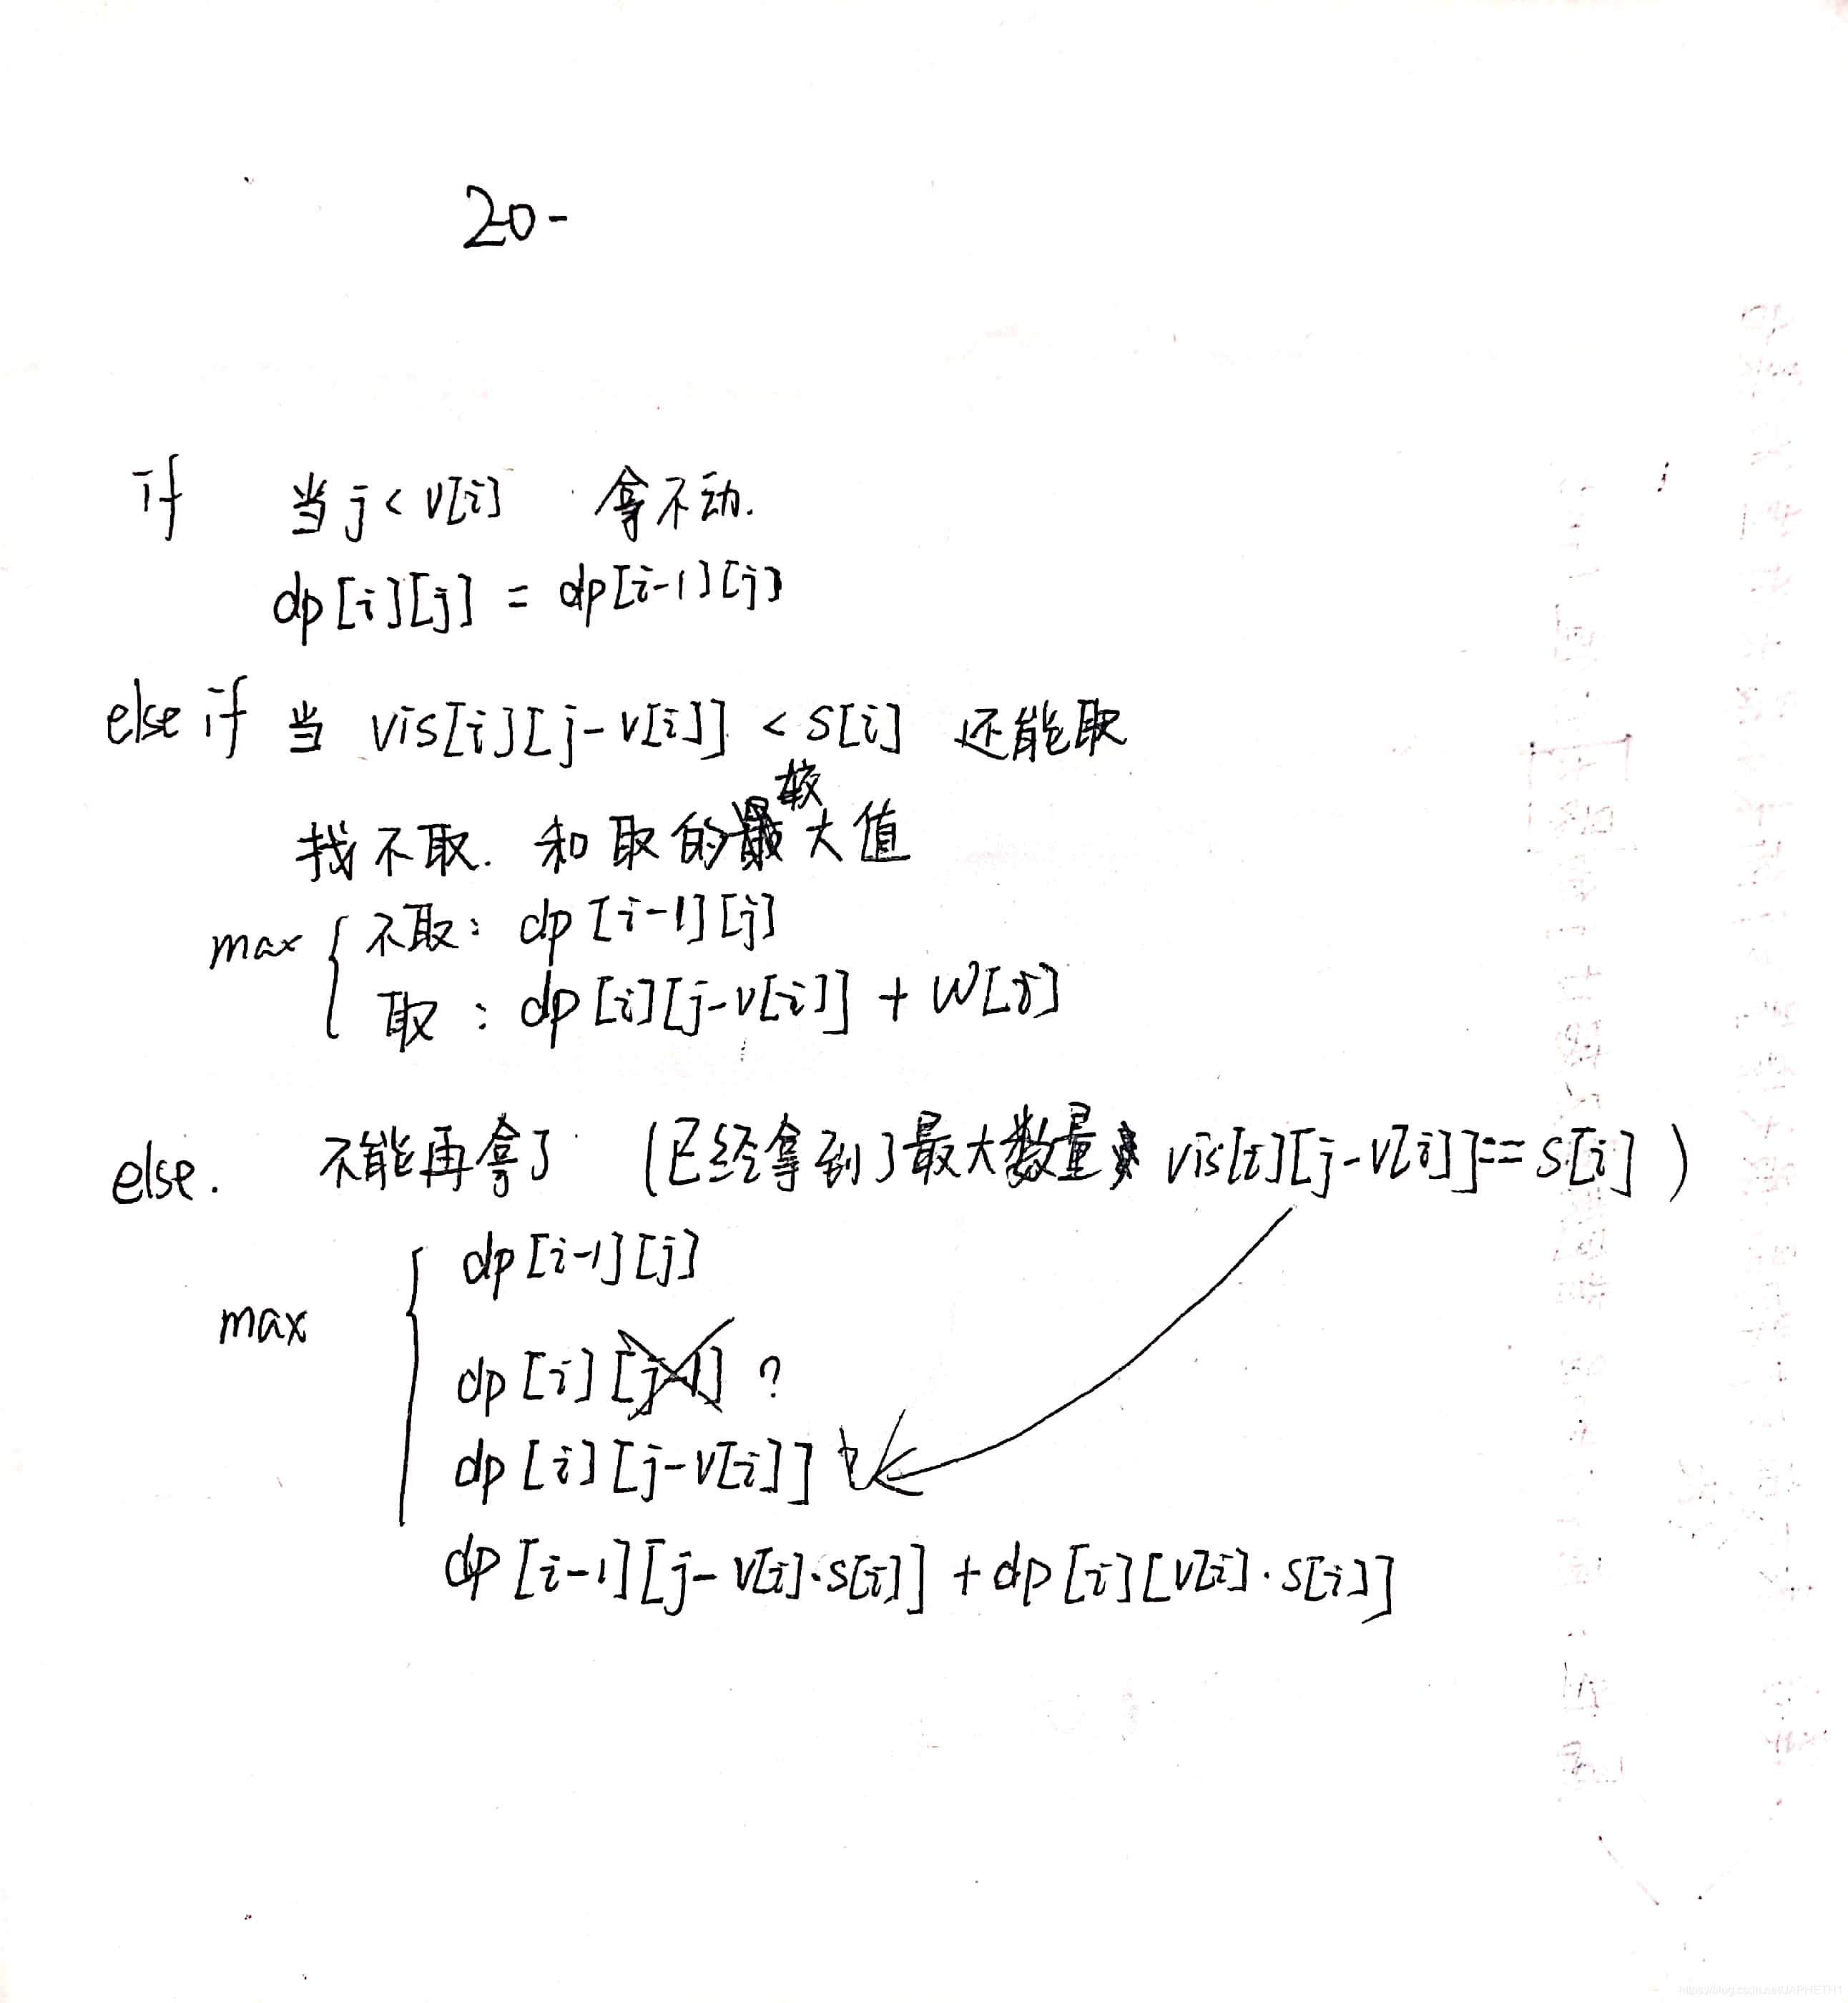 20-
if 当 j < v[i] 拿不动.
dp[i][j] = dp[i-1][j]
else if 当 vis[i][j-v[i]] < s[i] 还能取
较
找不取. 和取的最大值
max { 不取: dp[i-1][j]
取: dp[i][j-v[i]] + w[j]
else. 不能再拿了 (已经拿到了最大数量 vis[i][j-v[i]]==s[i])
dp[i-1][j]
max {
dp[i][j-1] ?
dp[i][j-v[i]]
dp[i-1][j-v[i]·s[i]] + dp[i][v[i]·s[i]]
https://blog.csdn.net/JAPHETH1